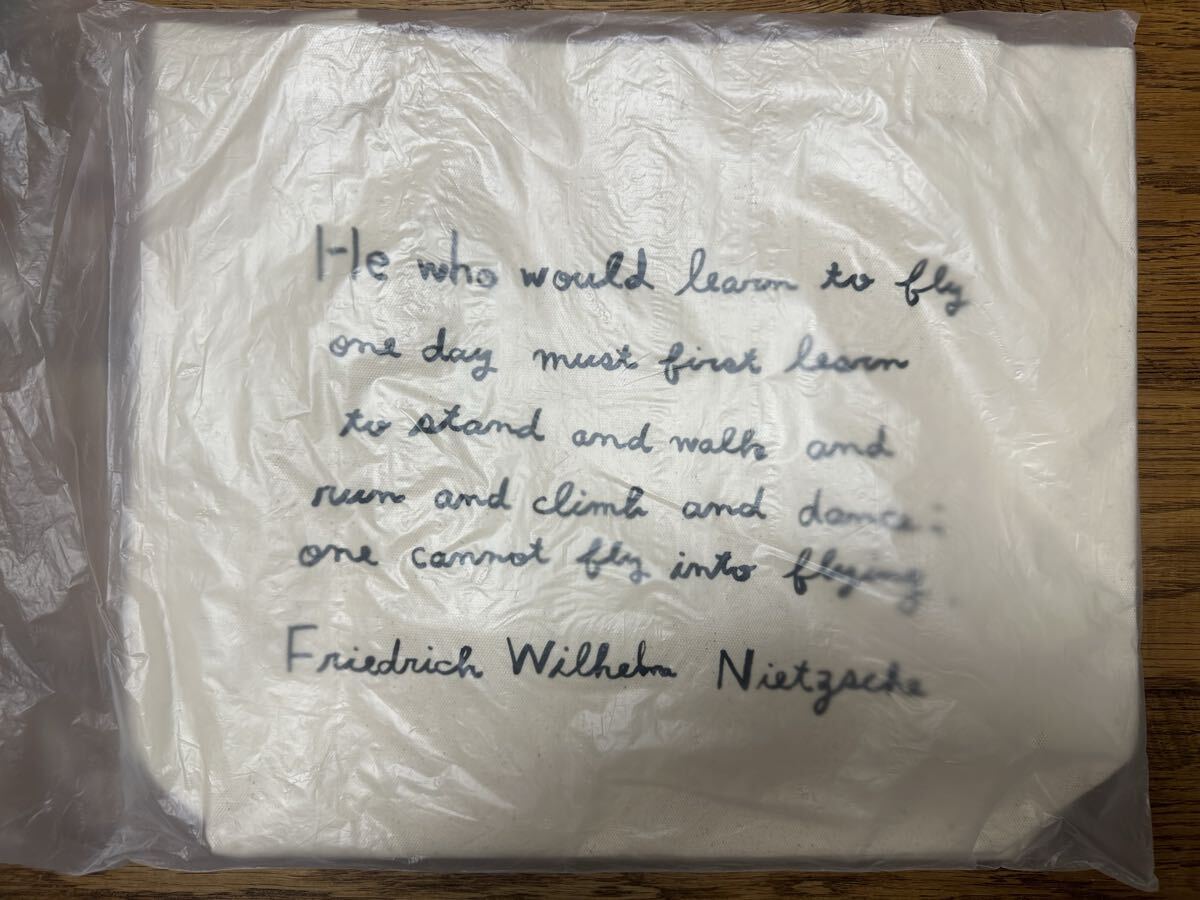 He who would learn to fly
one day must first learn
to stand and walk and
run and climb and dance:
one cannot fly into flying.
Friedrich Wilhelm Nietzsche